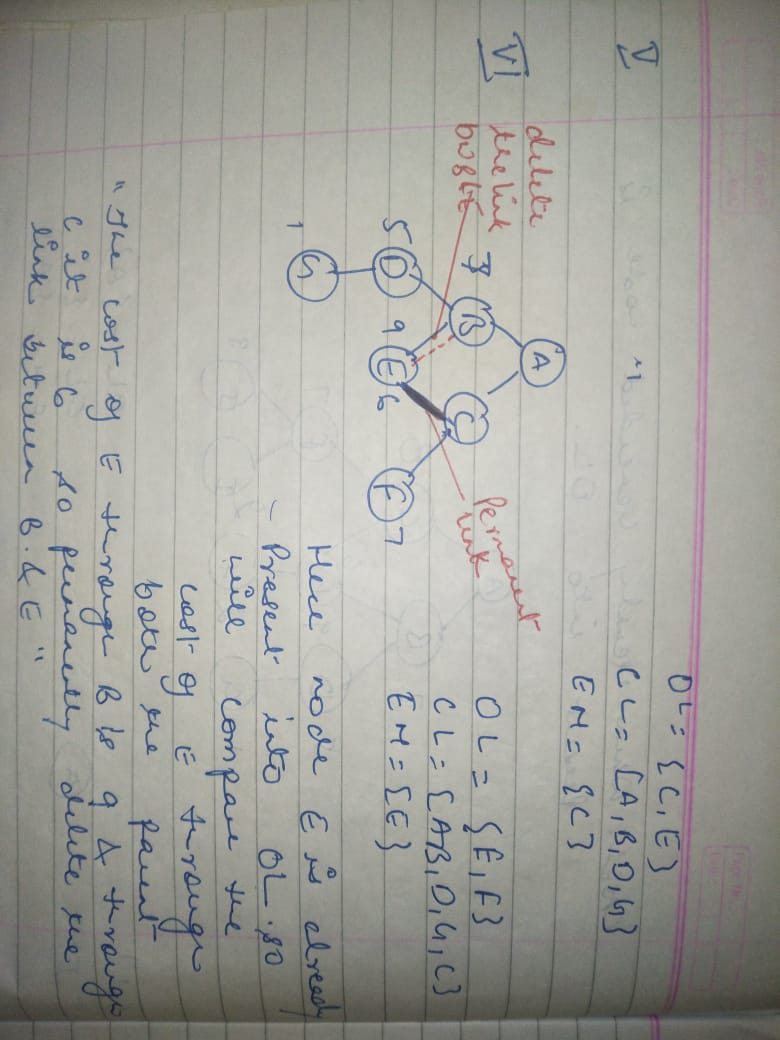 V
OL = {C, E}
CL = {A, B, D, G}
EN = {C}
VI
delete
the link
b/w B & E
A
B
C
5 D
9 E 6
F 7
1 G
Permanent
link
OL = {E, F}
CL = {A,B, D, G, C}
EN = {E}
Here node E is already
- Present into OL. so
will compare the
cost of E through
both the parent
"The cost of E through B is 9 & through
C it is 6 so permanently delete the
link between B & E"